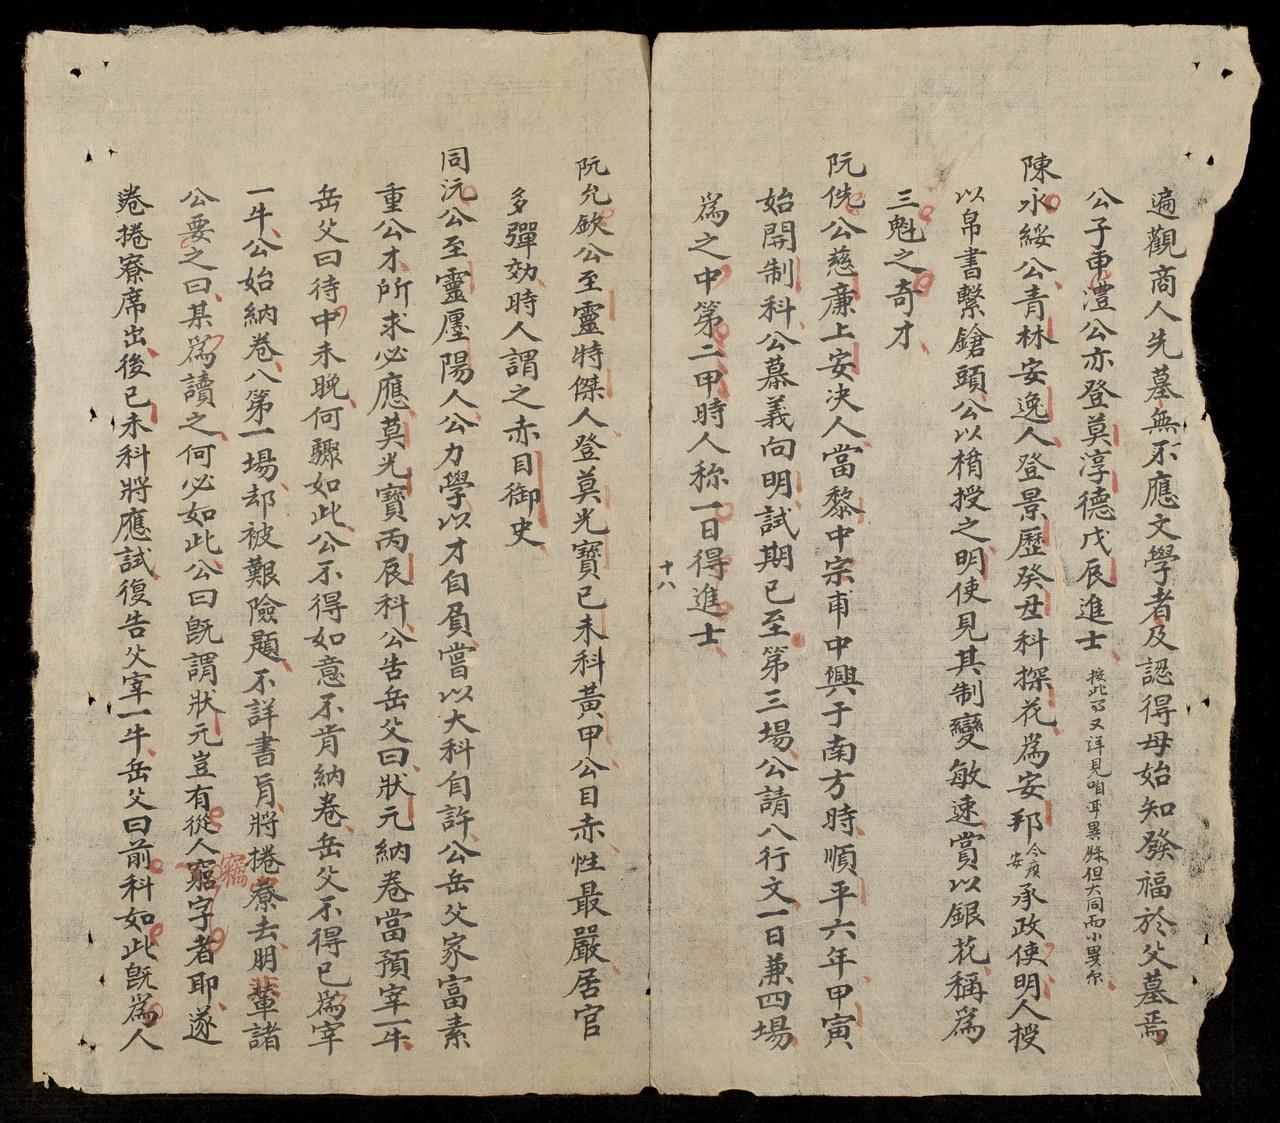 遍觀商人先墓無不應文學者及認得母始知發福於父墓焉
公子軍澧公亦登莫淳德戊辰進士 按此段又詳見咱耳異縣但大同而小異尔
陳永綏公青林安逸人登景歷癸丑科探花為安邦 今廣安 承政使明人授
以帛書繫鎗頭公以楕授之明使見其制變敏速賞以銀花稱為
三魁之奇才
阮侁公慈廉上安决人當黎中宗甫中興于南方時順平六年甲寅
始開制科公慕義向明試期已至第三場公請八行文一日兼四場
為之中第二甲時人称一日得進士
十八
阮允欽公至靈特傑人登莫光寶己未科黃甲公目赤性最嚴居官
多彈効時人謂之赤目御史
同沆公至靈廛陽人公力學以才自負嘗以大科自許公岳父家富素
重公才所求必應莫光寶丙辰科公告岳父曰狀元納卷當預宰一牛
岳父曰待中未晚何驟如此公不得如意不肯納卷岳父不得已為宰
一牛公始納卷八第一場却被艱險題不詳書旨將捲寮去朋輩諸
公要之曰某為讀之何必如此公曰既謂狀元豈有從人窮字者耶遂
卷捲寮席出後己未科將應試復告父宰一牛岳父曰前科如此既為人
竊